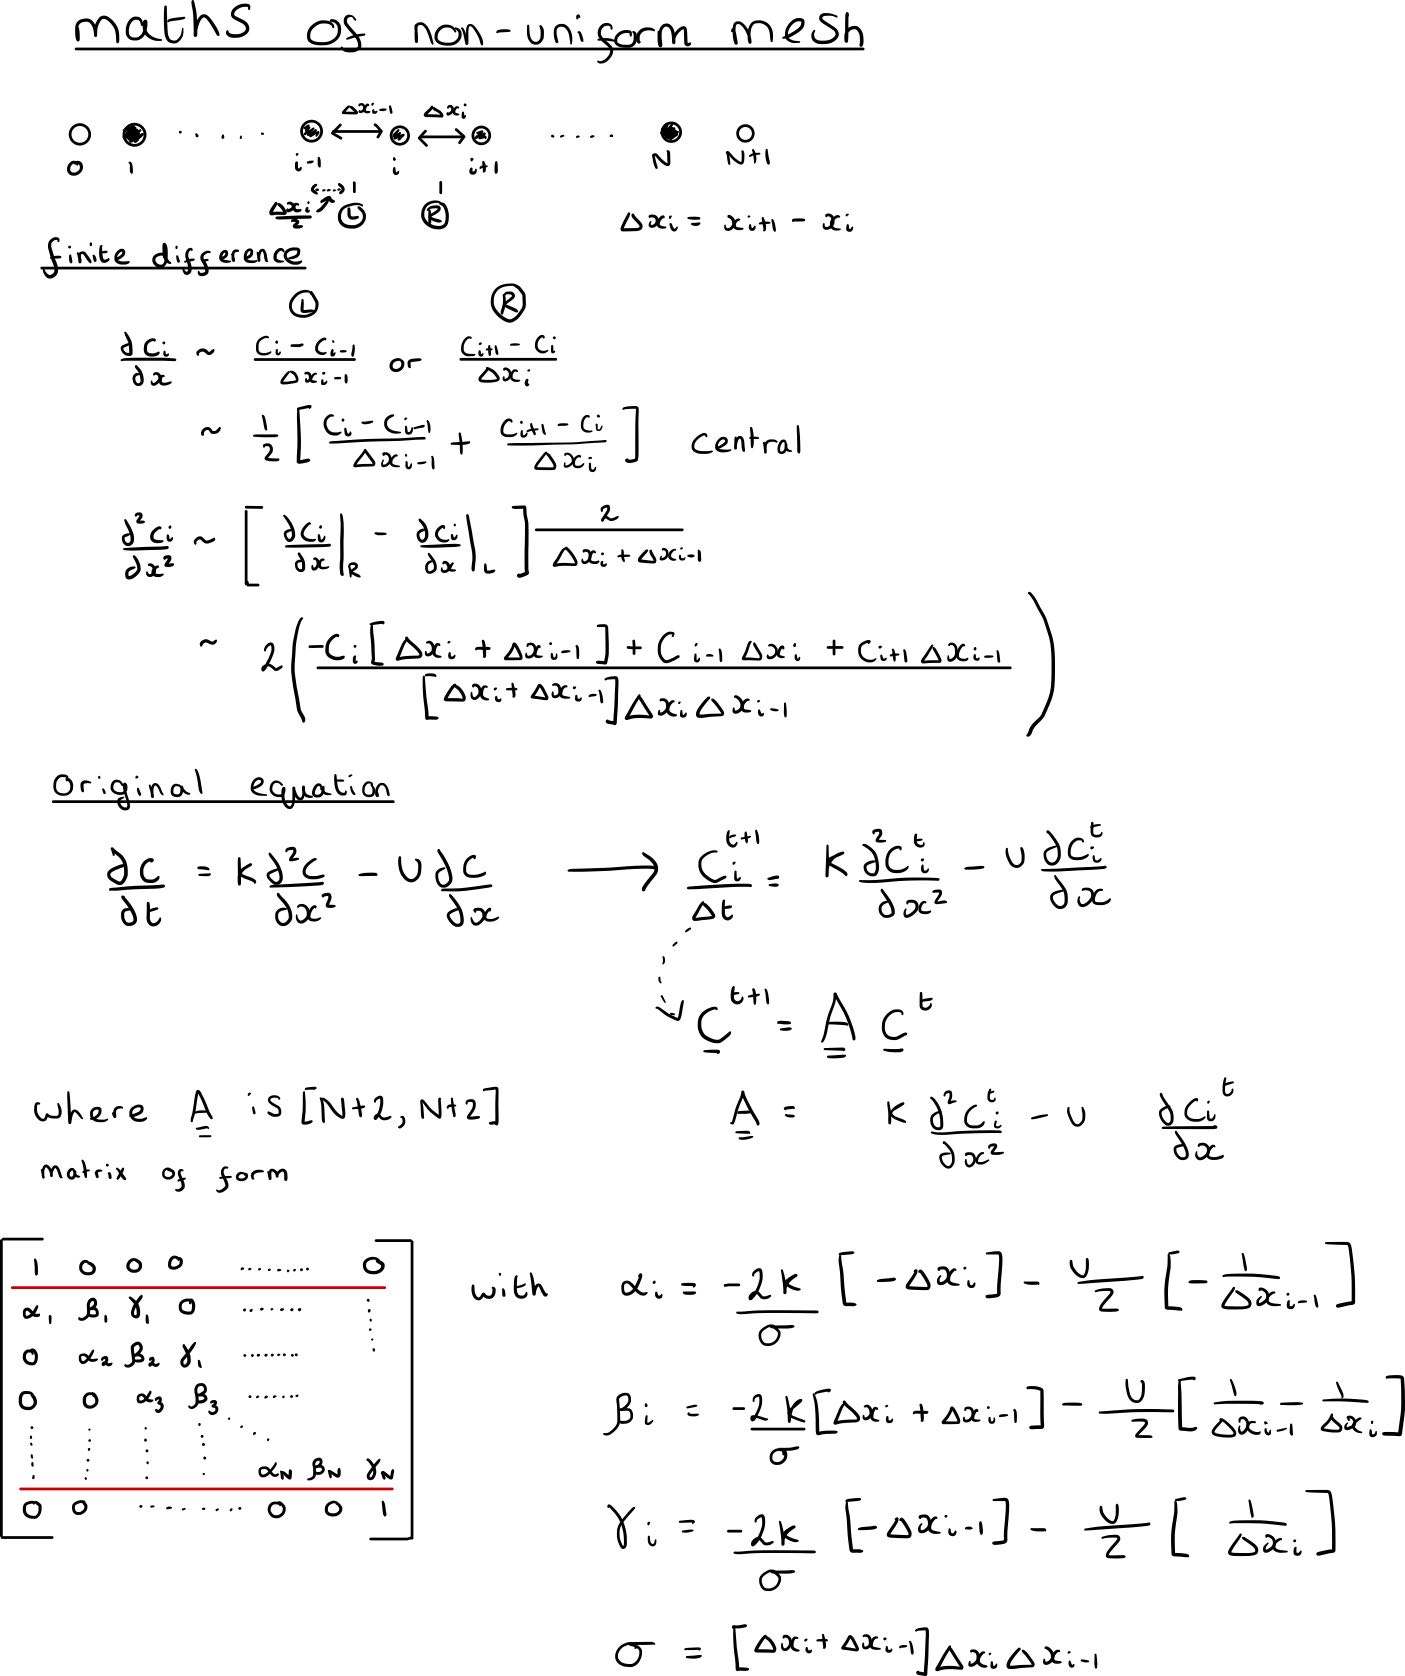 maths of non-uniform mesh
Δxi-1 Δxi
0 1 ...... i-1 i i+1 ..... N N+1
Δxi/2 L R Δxi = xi+1 - xi
finite difference
L R
∂Ci/∂x ~ (Ci - Ci-1)/Δxi-1 or (Ci+1 - Ci)/Δxi
~ 1/2 [ (Ci - Ci-1)/Δxi-1 + (Ci+1 - Ci)/Δxi ] central
∂²Ci/∂x² ~ [ ∂Ci/∂x |R - ∂Ci/∂x |L ] 2/(Δxi + Δxi-1)
~ 2( (-Ci[Δxi + Δxi-1] + Ci-1 Δxi + Ci+1 Δxi-1) / ([Δxi + Δxi-1]ΔxiΔxi-1) )
Original equation
∂C/∂t = K ∂²C/∂x² - U ∂C/∂x ⟶ Ci^t+1/Δt = K ∂²Ci^t/∂x² - U ∂Ci^t/∂x
C^t+1 = A C^t
where A is [N+2, N+2] A = K ∂²Ci^t/∂x² - U ∂Ci^t/∂x
matrix of form
1 0 0 0 ........ 0
α1 β1 γ1 0 .......
0 α2 β2 γ1 ........
0 0 α3 β3 .......
αN βN γN
0 0 ........... 0 0 1
with αi = -2K/σ [-Δxi] - U/2 [-1/Δxi-1]
βi = -2K/σ [Δxi + Δxi-1] - U/2 [1/Δxi-1 - 1/Δxi]
γi = -2K/σ [-Δxi-1] - U/2 [1/Δxi]
σ = [Δxi + Δxi-1]ΔxiΔxi-1